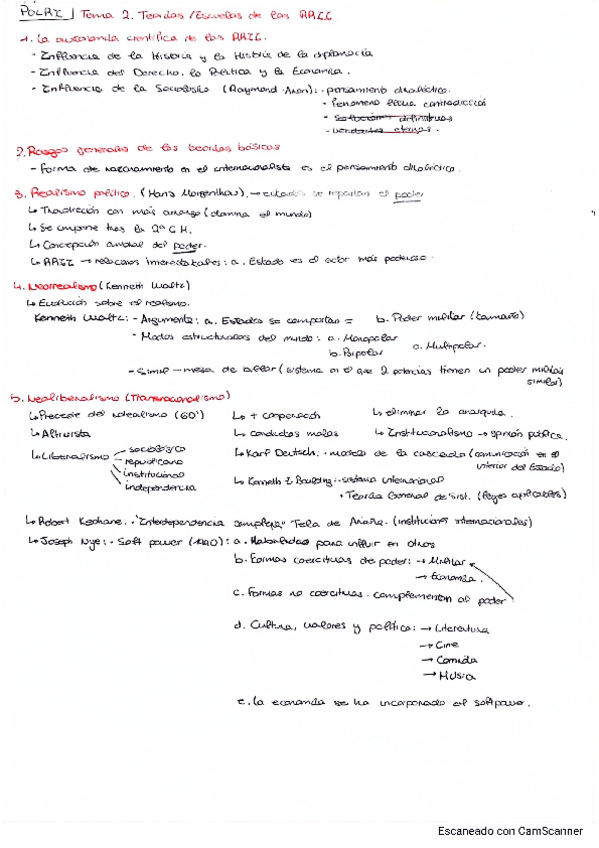 POLRI Tema 2. Teorías/Escuelas de las RRII
1. La autonomía científica de las RRII.
- Influencia de la Historia y la Historia de la diplomacia
- Influencia del Derecho, la Política y la Economía.
- Influencia de la Sociología (Raymond Aron): · pensamiento dicotómico.
· fenómeno lleva contradicción
· Soluciones definitivas
· verdades eternas.
2. Rasgos generales de las teorías básicas
- Forma de razonamiento en el internacionalista es el pensamiento
3. Realismo político. (Hans Morgenthau). → estados se reparten el poder
↳ Tradición con más arraigo (domina el mundo)
↳ Se impone tras la 2ª G.M.
↳ Concepción amoral del poder.
↳ RRII → relaciones interestatales: a. Estado es el actor más poderoso.
4. Neorrealismo (Kenneth Waltz)
↳ Evolución sobre el realismo.
Kenneth Waltz: - Argumenta: a. Estados se comportan = b. Poder militar (tamaño)
- Modos estructuradores del mundo: a. Monopolar
b. Bipolar c. Multipolar.
- Símil - mesa de billar (sistema en el que 2 potencias tienen un poder militar similar)
5. Neoliberalismo (Transnacionalismo)
↳ Procede del idealismo (60') ↳ + cooperación ↳ eliminar la anarquía.
↳ Altruista ↳ conductas malas ↳ Institucionalismo → opinión pública.
↳ Liberalismo sociológico
republicano
institucional
independencia
↳ Karl Deutsch: · modelo de la cascada (comunicación en el interior del Estado)
↳ Kenneth E Boulding: · sistema internacional
· Teoría General de Sist. (leyes aplicables)
↳ Robert Keohane: · "Interdependencia compleja" Tela de Araña. (instituciones internacionales)
↳ Joseph Nye: · Soft power (1990): a. Habilidad para influir en otros
b. Formas coercitivas de poder: → Militar
→ Economía.
c. Formas no coercitivas · complementan al poder
d. Cultura, valores y política: → Literatura
→ Cine
→ Comida
→ Música
e. La economía se ha incorporado al softpower.
Escaneado con CamScanner